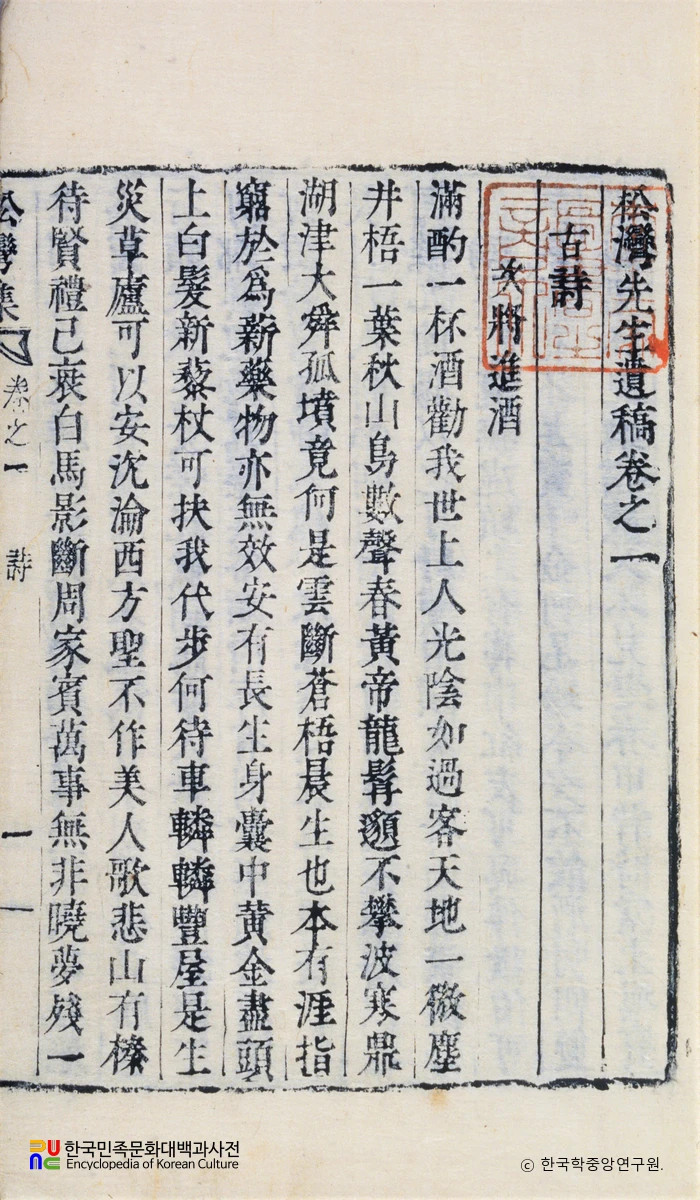 松灣先生遺稿卷之一
古詩
次將進酒
滿酌一杯酒勸我世上人光陰如過客天地一微塵
井梧一葉秋山鳥數聲春黃帝龍髯邈不攀波寒鼎
湖津大舜孤墳竟何是雲斷蒼梧晨生也本有涯指
窮於爲薪藥物亦無效安有長生身囊中黃金盡頭
上白髮新藜杖可扶我代步何待車轔轔豐屋是生
災草廬可以安沉淪西方聖不作美人歌悲山有榛
待賢禮已衰白馬影斷周家賓萬事無非曉夢殘一
松灣集
卷之一
詩
一
한국민족문화대백과사전
Encyclopedia of Korean Culture
ⓒ 한국학중앙연구원.